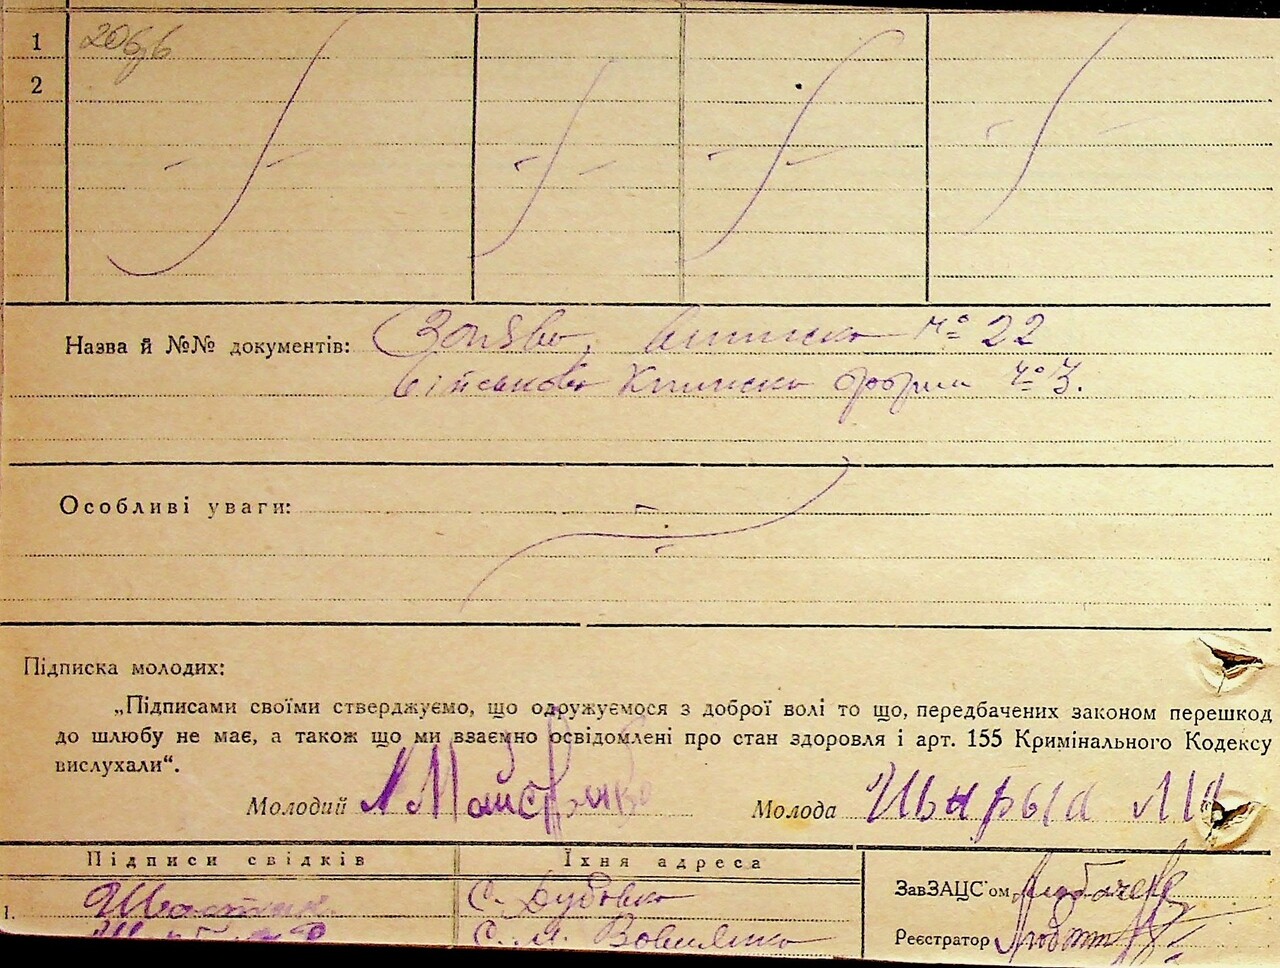 1
2
Назва й №№ документів: Заява, виписка № 22
військова книжка форма № 3.
Особливі уваги:
Підписка молодих:
„Підписами своїми стверджуємо, що одружуємося з доброї волі то що, передбачених законом перешкод
до шлюбу не має, а також що ми взаємно освідомлені про стан здоровля і арт. 155 Кримінального Кодексу
вислухали“.
Молодий Молода
Підписи свідків Їхня адреса
ЗавЗАЦС'ом
1. с. Дубовка
Реєстратор
с. М.